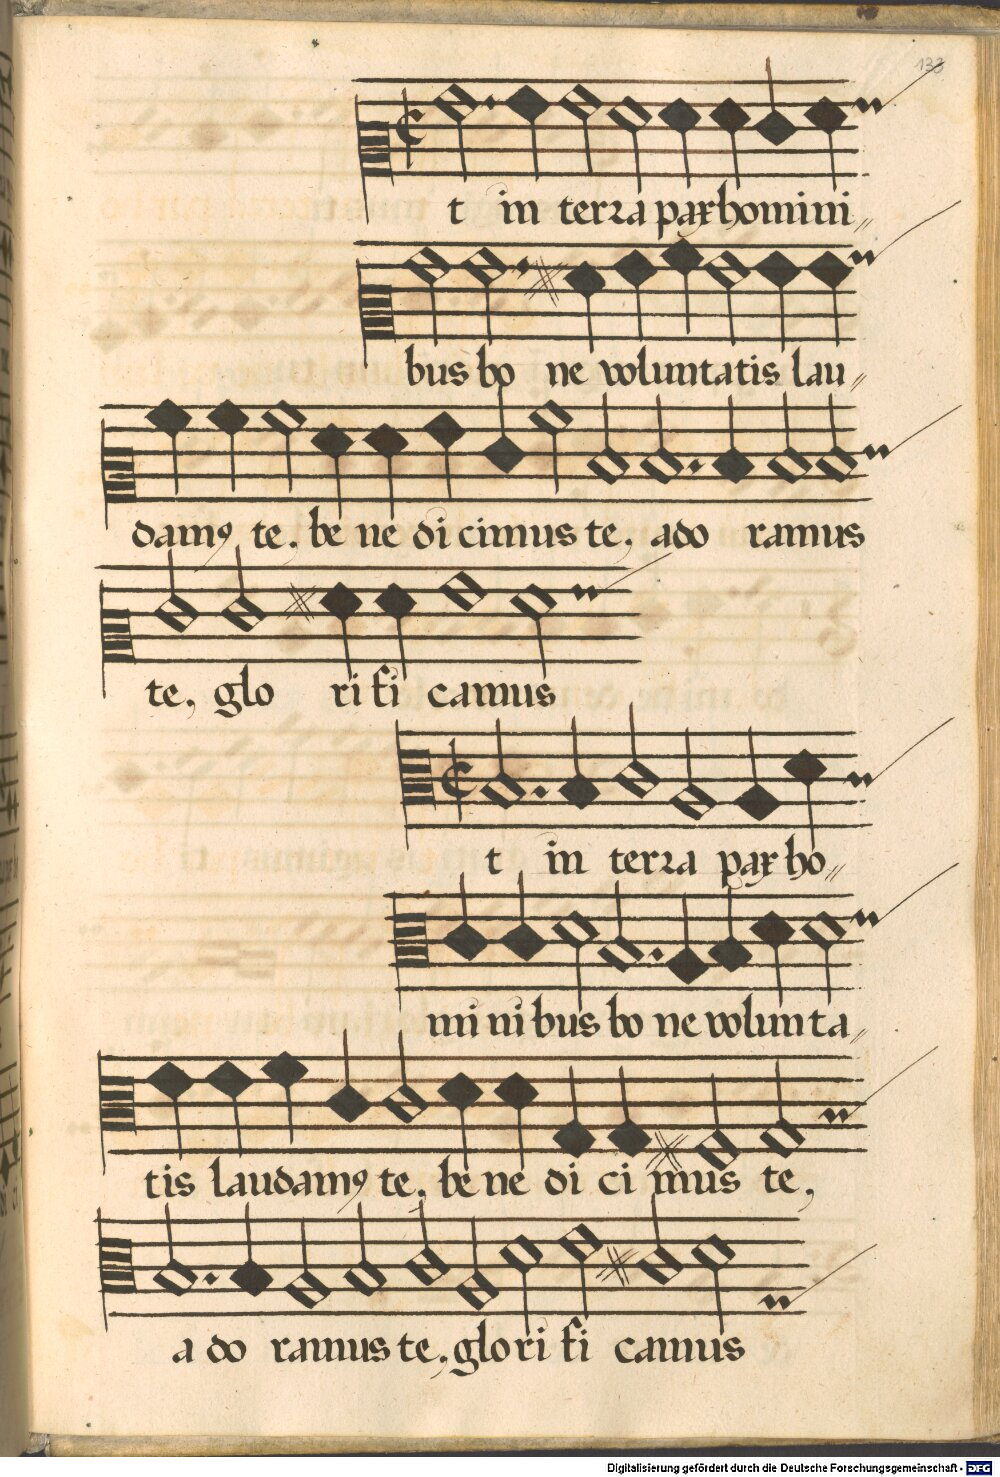 133
t in terra pax homini
bus bo ne voluntatis lau
damꝰ te. be ne dicimus te, ado ramus
te, glo ri fi camus
t in terra pax ho
mi ni bus bo ne volunta
tis laudamꝰ te, be ne di ci mus te,
a do ramus te, glo ri fi camus
Digitalisierung gefördert durch die Deutsche Forschungsgemeinschaft - DFG